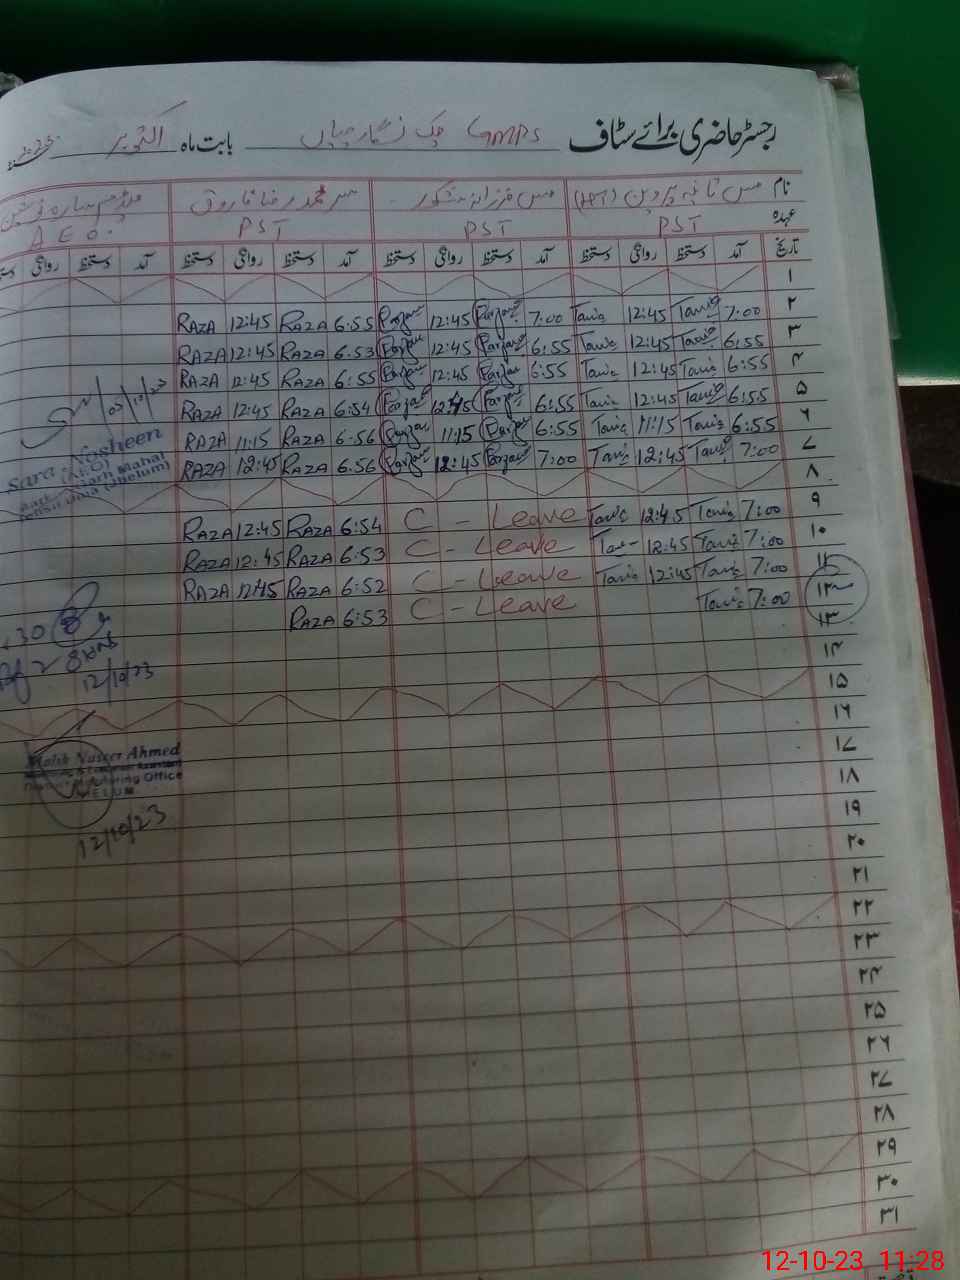 رجسٹر حاضری برائے سٹاف GMPS چک نگار چیاں بابت ماہ اکتوبر
نام مس ثانیہ پروین (HT) مس فرزانہ مشکور سر محمد رضا فاروق
عہدہ PST PST PST A E O.
تاریخ آمد دستخط روانگی دستخط آمد دستخط روانگی دستخط آمد دستخط روانگی دستخط آمد دستخط روانگی
۱
۲ 7:00 Tania 12:45 Tania 7:00 Farzana 12:45 Farzana 6:55 RAZA 12:45 RAZA
۳ 6:55 Tania 12:45 Tania 6:55 Farzana 12:45 Farzana 6:53 RAZA 12:45 RAZA
۴ 6:55 Tania 12:45 Tania 6:55 Farzana 12:45 Farzana 6:55 RAZA 12:45 RAZA
۵ 6:55 Tania 12:45 Tania 6:55 Farzana 12:45 Farzana 6:54 RAZA 12:45 RAZA
۶ 6:55 Tania 11:15 Tania 6:55 Farzana 11:15 Farzana 6:56 RAZA 11:15 RAZA
۷ 7:00 Tania 12:45 Tania 7:00 Farzana 12:45 Farzana 6:56 RAZA 12:45 RAZA
05/10/23
Sara Nosheen
(AEO)
۸
۹ 7:00 Tania 12:45 Tania C - Leave 6:54 RAZA 12:45 RAZA
۱۰ 7:00 Tania 12:45 Tania C - Leave 6:53 RAZA 12:45 RAZA
۱۱ 7:00 Tania 12:45 Tania C - Leave 6:52 RAZA 12:45 RAZA
۱۲ 7:00 Tania C - Leave 6:53 RAZA
۱۳
۱۴
12/10/23
۱۵
۱۶
۱۷
Malik Naseer Ahmed
Monitoring Office
JHELUM
12/10/23
۱۸
۱۹
۲۰
۲۱
۲۲
۲۳
۲۴
۲۵
۲۶
۲۷
۲۸
۲۹
۳۰
۳۱
12-10-23 11:28